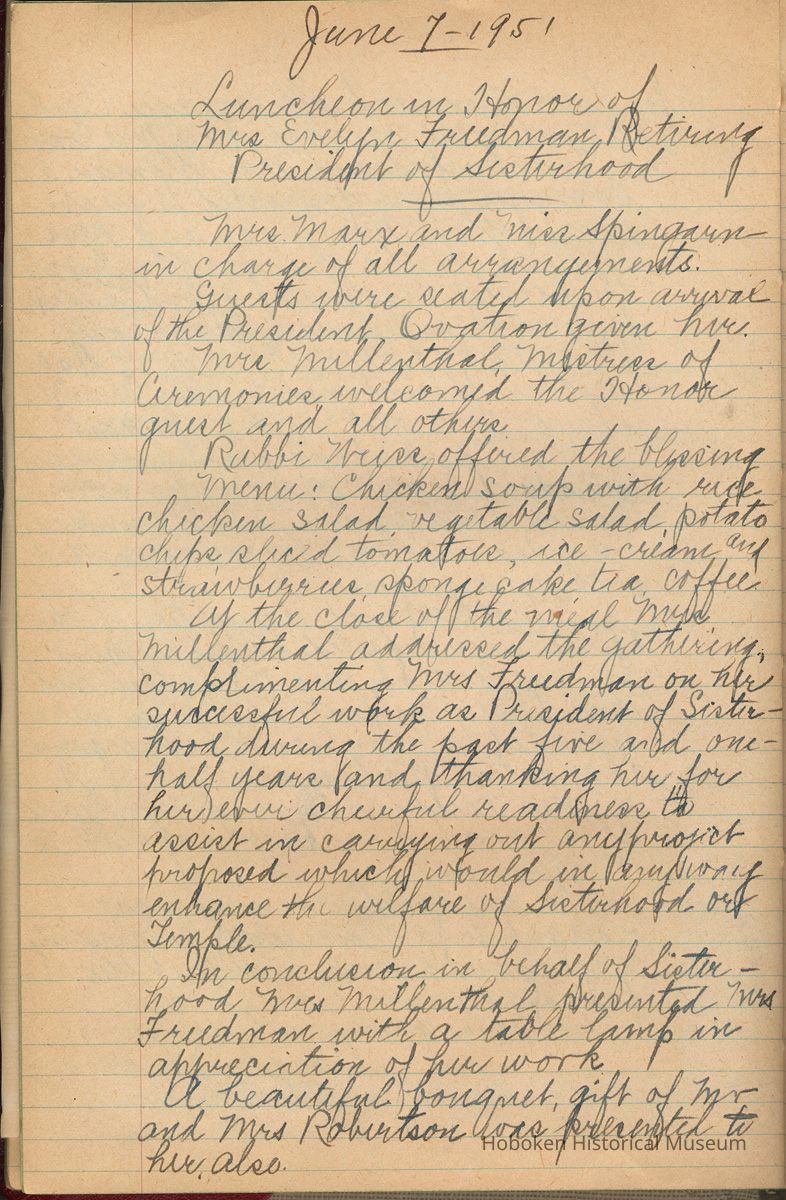 June 7-1951
Luncheon in Honor of
Mrs Evelyn Friedman Retiring
President of Sisterhood
Mrs. Marx and Miss Spingarn
in charge of all arrangements.
Guests were seated upon arrival
of the President. Ovation given her.
Mrs Millenthal, Mistress of
Ceremonies, welcomed the Honor
guest and all others
Rabbi Weiss offered the blessing
Menu: Chicken soup with rice
chicken salad vegetable salad potato
chips sliced tomatoes, ice-cream and
strawberries sponge cake tea coffee
At the close of the meal Mrs
Millenthal addressed the gathering,
complimenting Mrs Friedman on her
successful work as President of Sister-
hood during the past five and one-
half years and thanking her for
her ever cheerful readiness to
assist in carrying out any project
proposed which would in any way
enhance the welfare of Sisterhood or
Temple.
In conclusion in behalf of Sister-
hood Mrs Millenthal presented Mrs
Friedman with a table lamp in
appreciation of her work
A beautiful bouquet, gift of Mr
and Mrs Robertson was presented to
her, also.
Hoboken Historical Museum